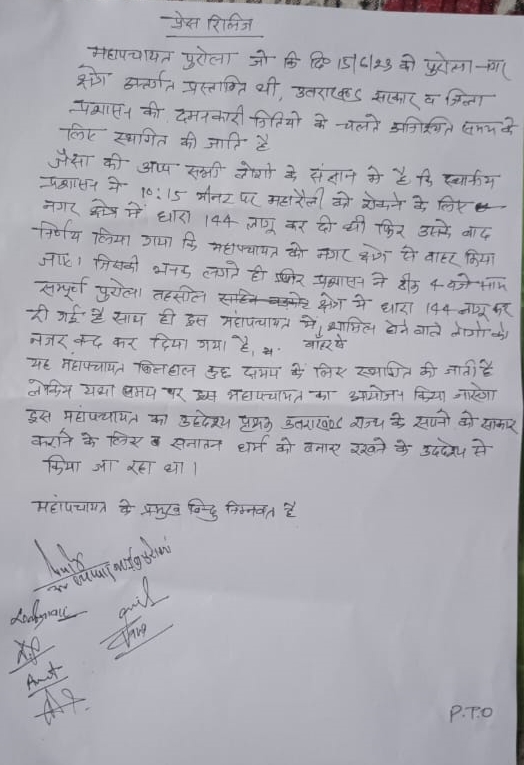 प्रेस रिलिज
महापंचायत पुरोला जो कि दि० 15/6/23 को पुरोला नगर
क्षेत्र अन्तर्गत प्रस्तावित थी, उत्तराखण्ड सरकार व जिला
प्रशासन की दमनकारी नितियों के चलते अनिश्चित समय के
लिए स्थगित की जाति है
जैसा की आप सभी लोगो के संज्ञान मे है कि स्थानीय
प्रशासन ने 10:15 मीनट पर महारैली को रोकने के लिए
नगर क्षेत्र में धारा 144 लागू कर दी थी फिर उसके बाद
निर्णय लिया गया कि महापंचायत को नगर क्षेत्र से बाहर किया
जाए। जिसकी भनक लगते ही प्रशासन ने ठीक 4 बजे साम
सम्पूर्ण पुरोला तहसील क्षेत्र मे धारा 144 लागू कर
दी गई है साथ ही इस महापंचायत मे, बाहर से शामिल होने वाले लोगो को
नजर बन्द कर दिया गया है,
यह महापंचायत फिलहाल कुछ समय के लिए स्थगित की जाती है
लेकिन यथा समय पर इस महापंचायत का आयोजन किया जायेगा
इस महापंचायत का उद्देश्य उत्तराखण्ड राज्य के सपनो को साकार
कराने के लिए व सनातन धर्म को बनाए रखने के उद्देश्य से
किया जा रहा था।
महापंचायत के प्रमुख बिन्दु निम्नवत है
Amit
P.T.O